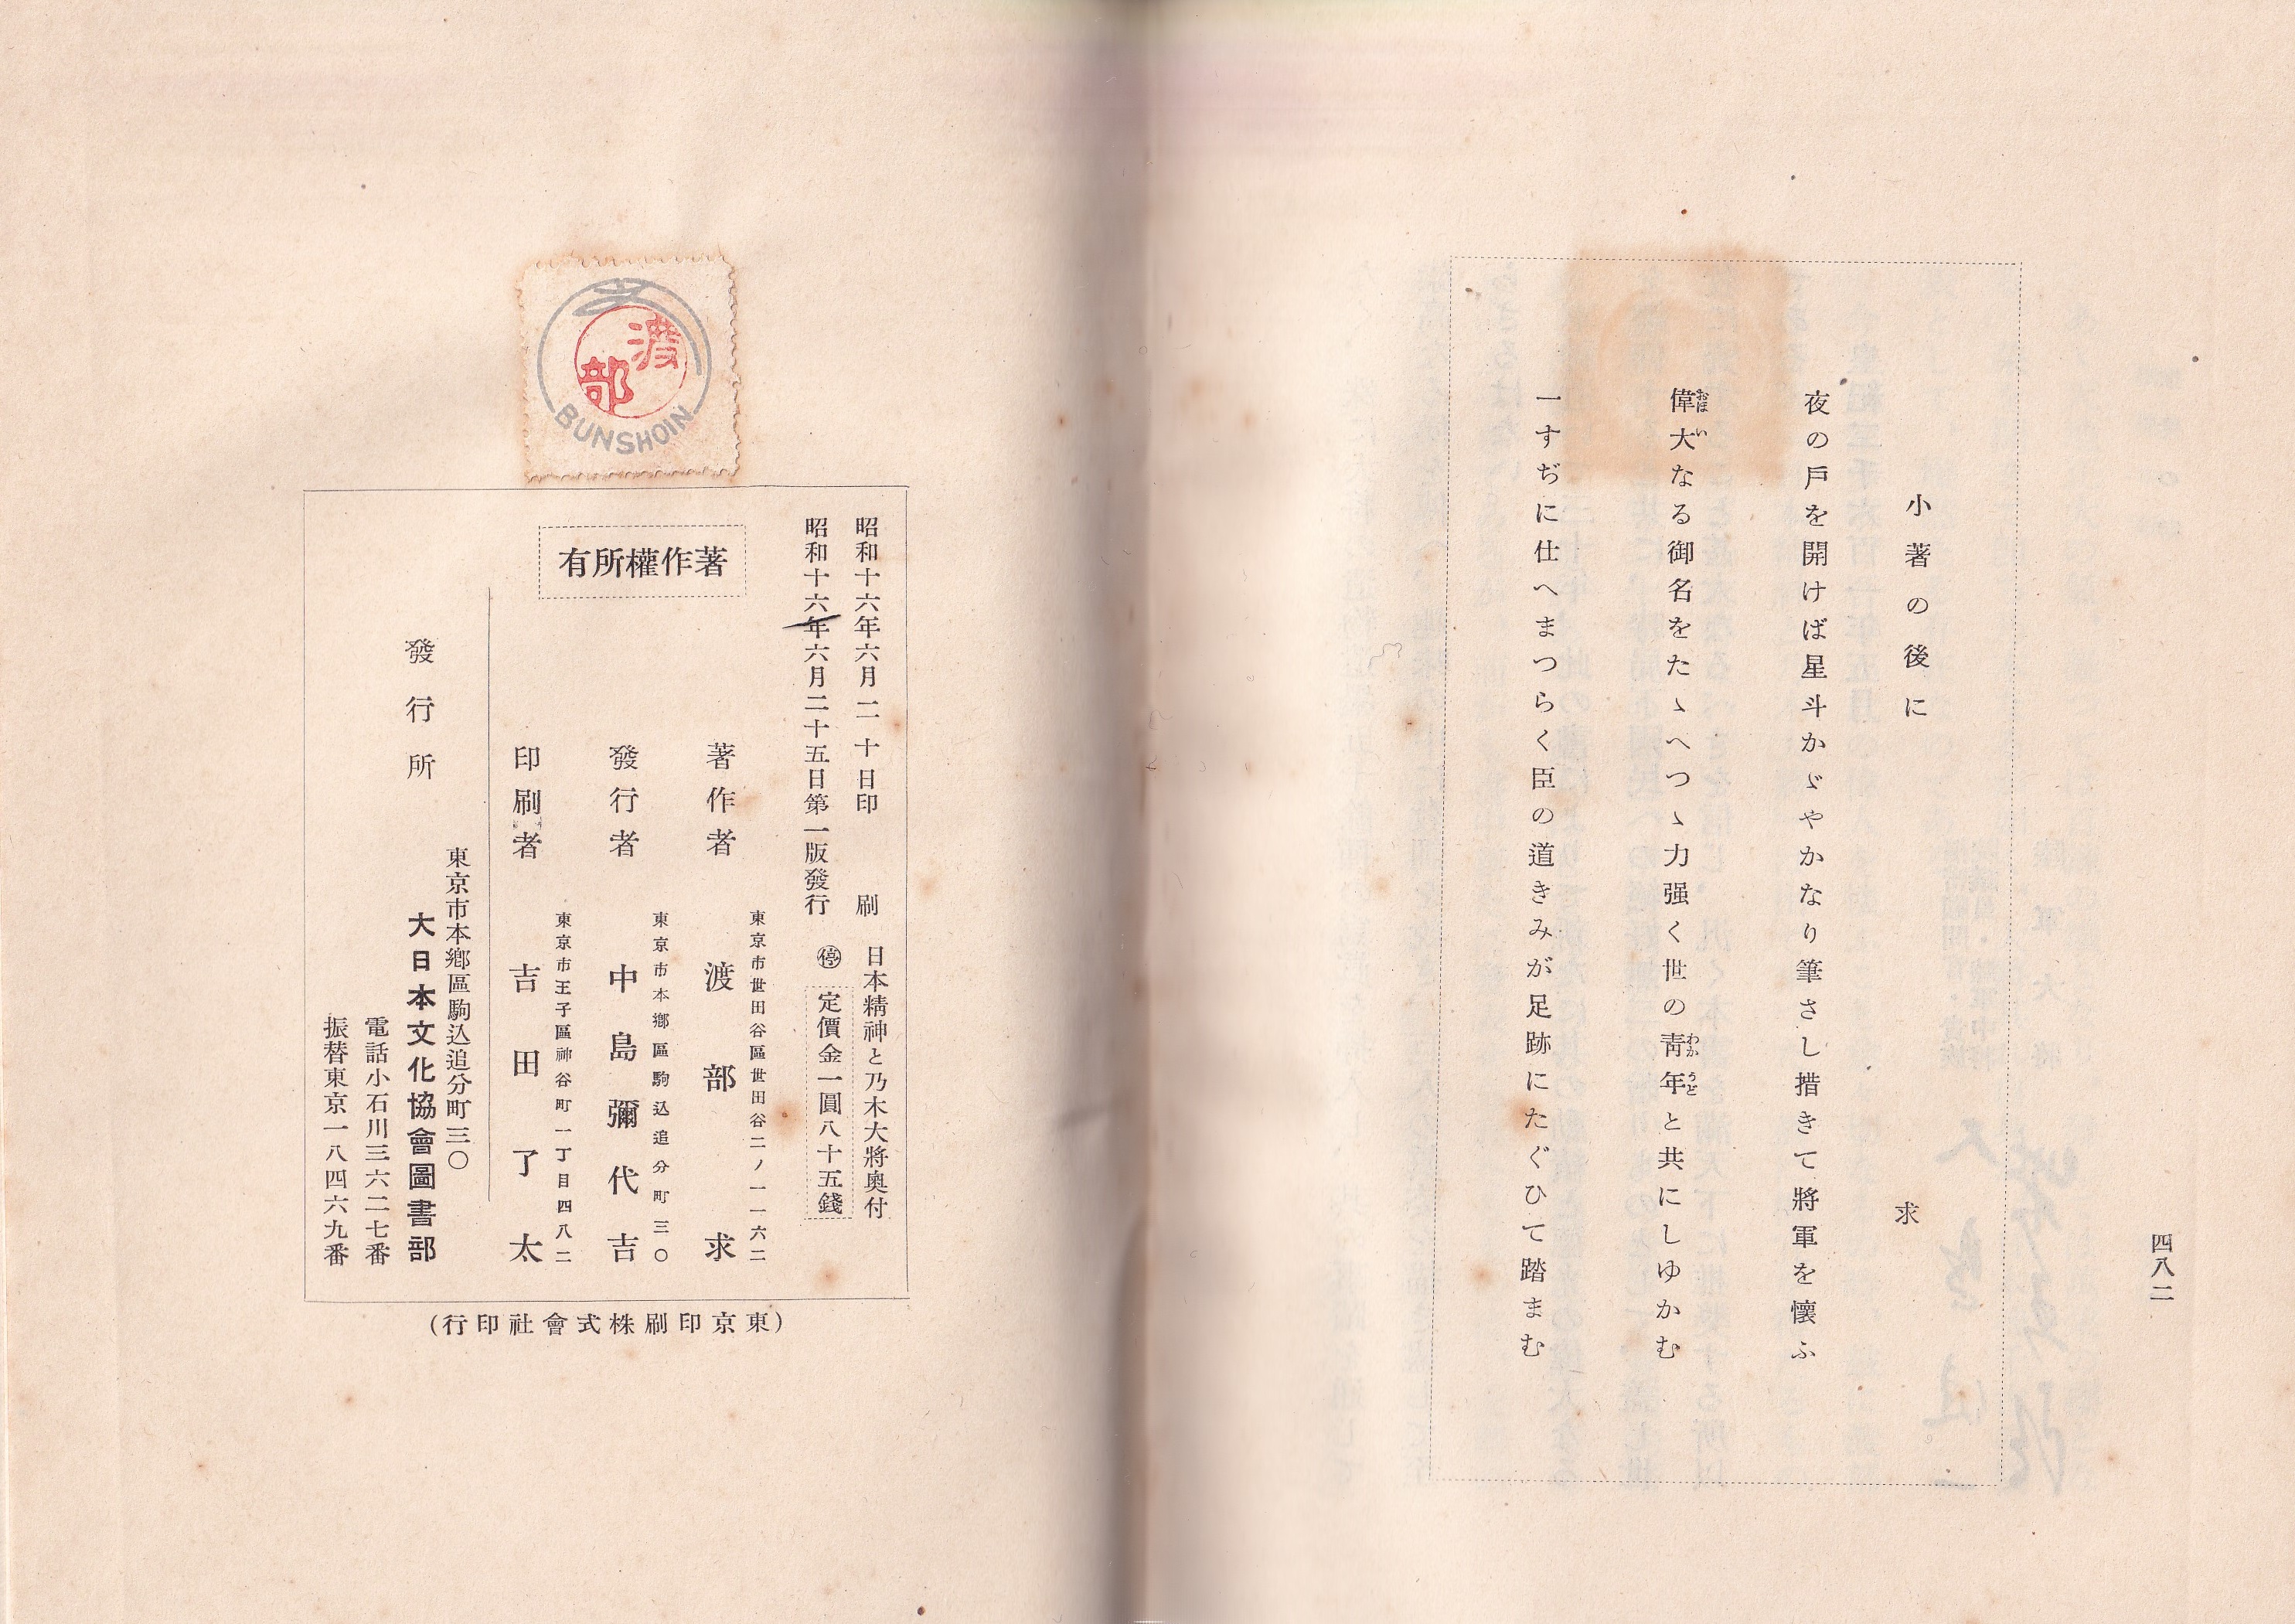 四八二
小著の後に
求
夜の戸を開けば星斗かゞやかなり筆さし措きて將軍を懷ふ
偉大なる御名をたゝへつゝ力强く世の靑年と共にしゆかむ
おほい
わかうど
一すぢに仕へまつらく臣の道きみが足跡にたぐひて踏まむ
渡部
BUNSHOIN
昭和十六年六月二十日印刷
昭和十六年六月二十五日第一版發行
日本精神と乃木大將奧付
停
定價金一圓八十五錢
著作權所有
東京市世田谷區世田谷二ノ一一六二
著作者 渡部求
東京市本鄕區駒込追分町三〇
發行者 中島彌代吉
東京市王子區神谷町一丁目四八二
印刷者 吉田了太
東京市本鄕區駒込追分町三〇
發行所 大日本文化協會圖書部
電話小石川三六二七番
振替東京一八四六九番
(東京印刷株式會社印行)